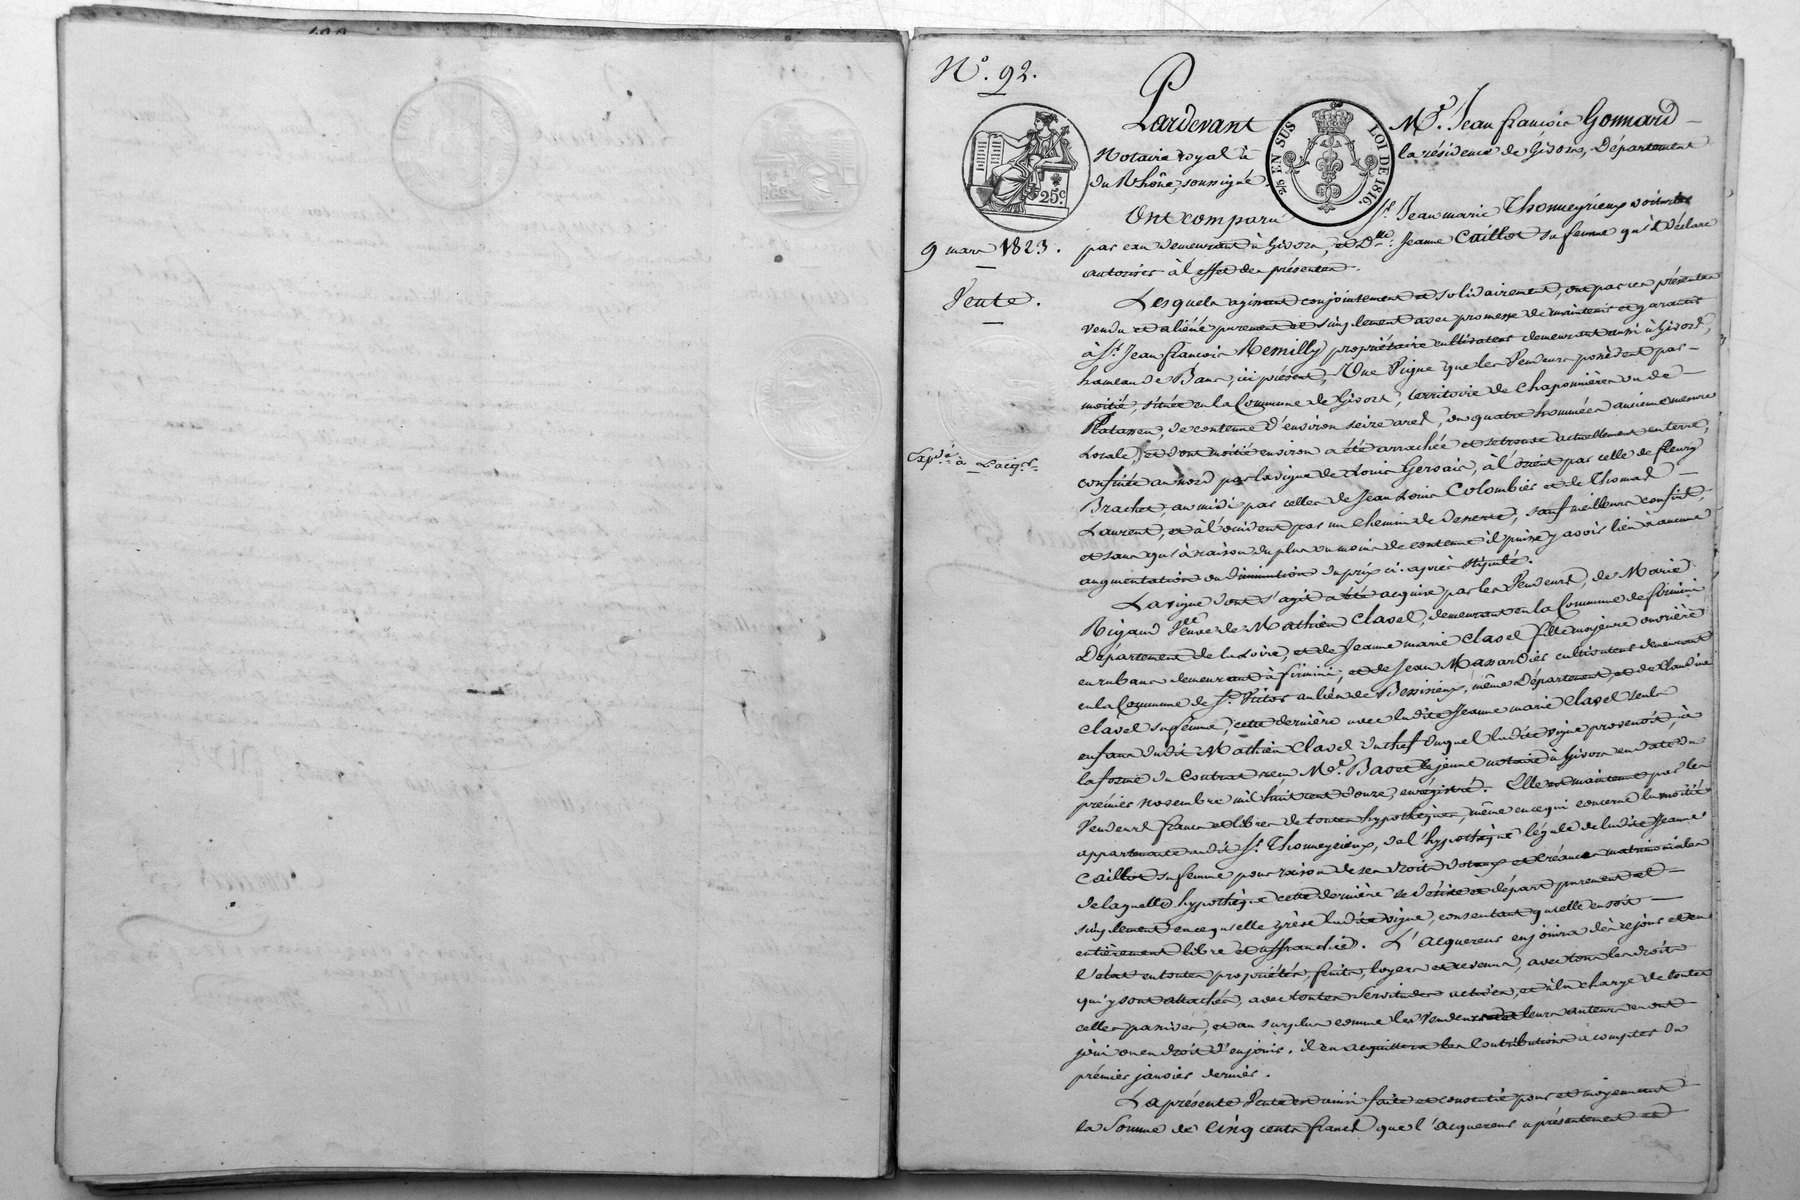 N.º 92.
Pardevant Mᵉ. Jean françois Gonnard
Notaire royal à la résidence de Givors, Département
du Rhône, soussigné,
2/5 EN SUS LOI DE 1816.
25c.
Ont comparu Sʳ. Jean marie Thomeyrieux voiturier
9 mars 1823.
par eau demeurant à Givors, et Dᵐᵉ. Jeanne Caillot sa femme qu'il déclare
autoriser à l'effet des présentes.
Vente.
Lesquels agissant conjointement et solidairement, ont par ces présentes
vendu et aliéné purement et simplement avec promesse de maintenir et garantir
à Sʳ. Jean françois Remilly propriétaire cultivateur demeurant aussi à Givors,
hameau de Bans, ici présent, Une Vigne que les Vendeurs possèdent par
moitié, située en la Commune de Givors, territoire de Chaponnières ou de
Platassen, de contenue d'environ seize ares, ou quatre hommées ancienne mesure
Locale, et dont moitié environ a été arrachée et se trouve actuellement en terre,
Expᵉ. à l'acqʳ.
confinée au nord par la vigne de Louis Gervais, à l'orient par celle de fleury
Brachet, au midi par celles de Jean Louis Colombier et de Thomas
Laurent, et à l'occident par un Chemin de desserte, sauf meilleurs confins,
et sans qu'à raison du plus ou moins de contenue il puisse y avoir lieu à aucune
augmentation ou diminution du prix ci-après stipulé.
La vigne dont s'agit a été acquise par les Vendeurs, de Marie
Rigaud Veuve de Mathieu Clavel, demeurant en la Commune de firmini
Département de la Loire, et de Jeanne marie Clavel fille majeure ouvrière
en rubans demeurant à firmini, et de Jean Massardier cultivateur demeurant
en la Commune de Sᵗ. Victor au lieu de Bessirieux, même Département, et de Claudine
Clavel sa femme, cette dernière avec ladite Jeanne marie Clavel seuls
enfans dudit Mathieu Clavel du chef duquel ladite vigne provenoit, à
la forme du Contrat reçu Mᵉ. Bavet le jeune notaire à Givors en date du
prémier novembre mil huit cent douze, enregistré. Elle est maintenue par les
Vendeurs franche et libre de toutes hypothèques, même en ce qui concerne la moitié
appartenante audit Sʳ. Thomeyrieux, de l'hypothèque légale de ladite Jeanne
Caillot sa femme pour raison de ses droits dotaux et créances matrimoniales
de laquelle hypothèque cette dernière se désiste et départ purement et
simplement en ce qu'elle grève ladite vigne, consentant qu'elle en soit
entièrement libre et affranchie. L'acquereur en jouira dès ce jour et en
l'état en toutes propriétés, fruits, loyers et revenus, avec tous les droits
qui y sont attachés, avec toutes servitudes actives, et à la charge de toutes
celles passives, et au surplus comme les Vendeurs et leurs auteurs en ont
joui ou eu droit d'en jouir. il en acquittera les Contributions à compter du
prémier janvier dernier.
La présente Vente est ainsi faite et consentie pour et moyennant
la somme de Cinq cents francs que l'acquereur a présentement et